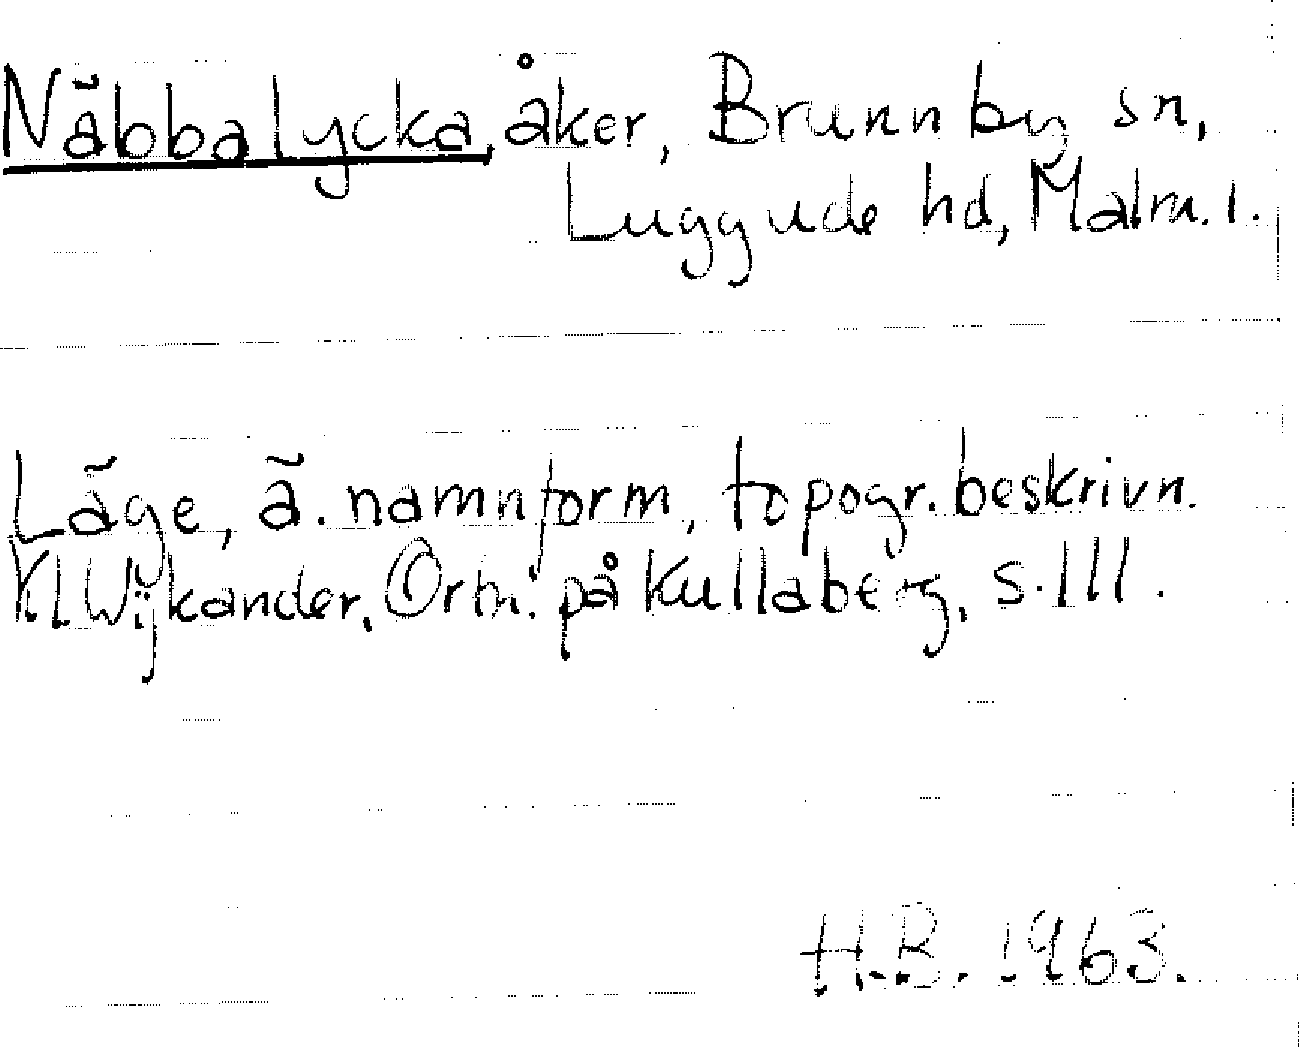 Näbbalycka, åker, Brunnby sn,
Luggude hd, Malm. l.
Läge, ä. namnform, topogr. beskrivn.
Kl Wijkander, Ortn. på Kullaberg, s. 111.
H.B. 1963.